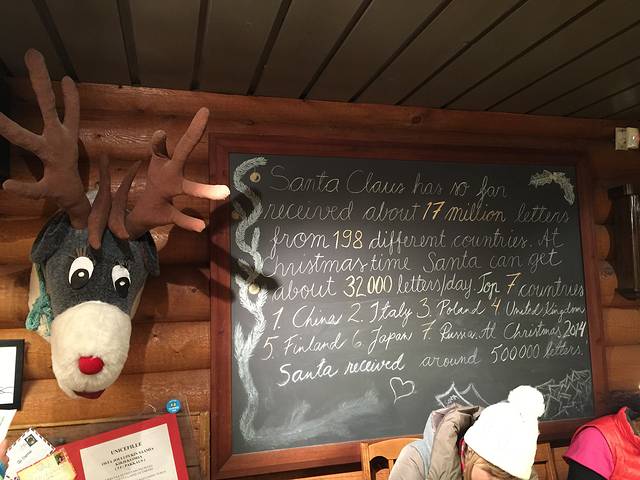 Santa Claus has so far
received about 17 million letters
from 198 different countries. At
Christmas time Santa can get
about 32 000 letters/day. Top 7 countries
1. China 2. Italy 3. Poland 4 United Kingdom
5. Finland 6. Japan 7. Russia. At Christmas 2014
Santa received around 500 000 letters.
UNICEFILLE